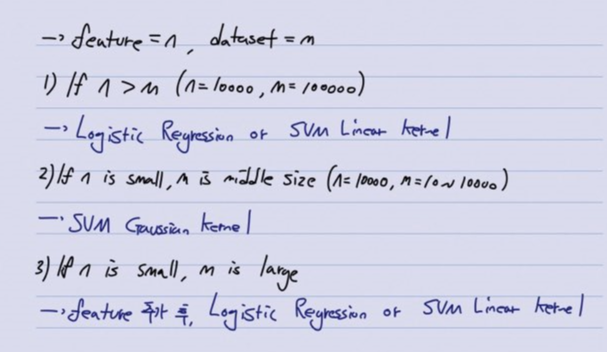 → feature = n, dataset = m
1) If n > m (n=10000, m=100000)
→ Logistic Regression or SVM Linear kernel
2) If n is small, m is middle size (n=10000, m=10~10000)
→ SVM Gaussian kernel
3) If n is small, m is large
→ feature 추가 후, Logistic Regression or SVM Linear kernel